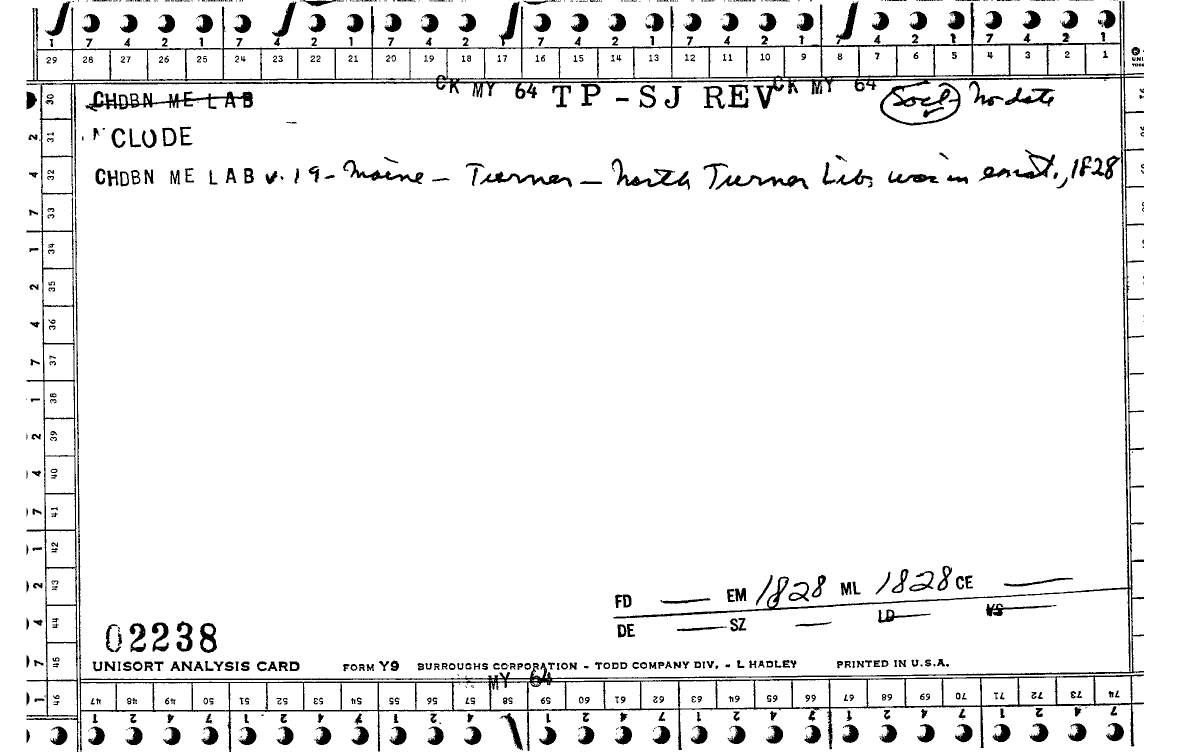 1 7 4 2 1 7 4 2 1 7 4 2 1 7 4 2 1 7 4 2 1 7 8 7 4 2 1 7 4 2 1
29 28 27 26 25 24 23 22 21 20 19 18 17 16 15 14 13 12 11 10 9 8 7 6 5 4 3 2 1
CK MY 64 TP-SJ REV CK MY 64 Socl no date
CHDBN ME LAB
CLUDE
CHDBN ME LAB v. 19 - Maine - Turner - North Turner Lib. was in exist., 1828
30
2 31
4 32
7 33
1 34
2 35
4 36
7 37
1 38
2 39
4 40
7 41
1 42
2 43
4 44
7 45
1 46
FD — EM 1828 ML 1828 CE —
DE — SZ — LD — VS —
02238
UNISORT ANALYSIS CARD FORM Y9 BURROUGHS CORPORATION - TODD COMPANY DIV. - L HADLEY PRINTED IN U.S.A.
MY 64
47 48 49 50 51 52 53 54 55 56 57 58 59 60 61 62 63 64 65 66 67 68 69 70 71 72 73 74